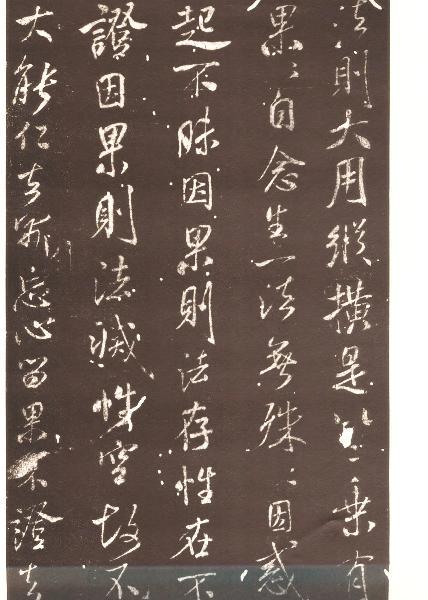 法則大用縱橫是以三乘有
果果自念生一法無殊殊因惑
起不昧因果則法存性在不
證因果則法滅性空故不
大能仁者斯忘心留果不證者